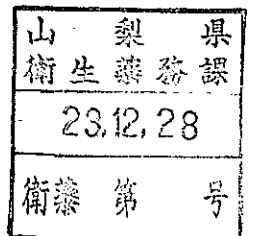 山梨県
衛生薬務課
23.12.28
衛薬第 号